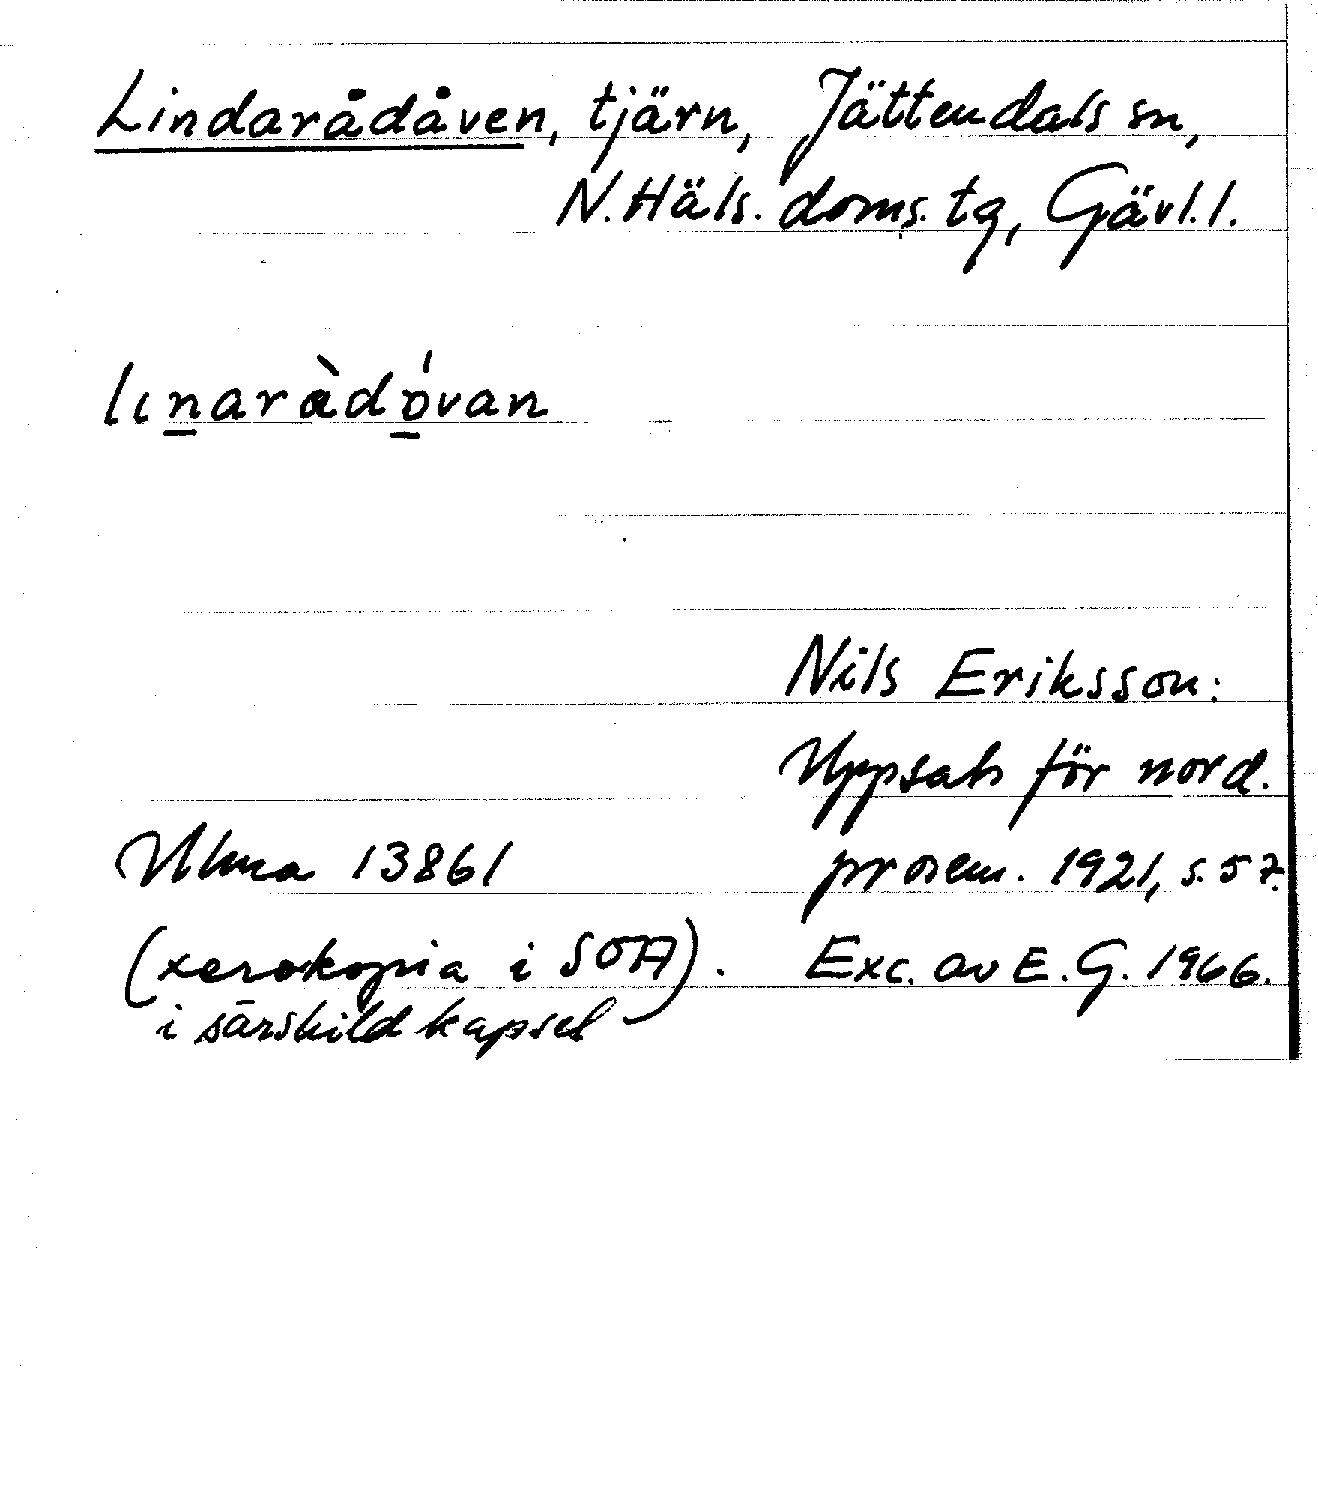 Lindarådåven, tjärn, Jättendals sn,
N. Häls. doms. tg, Gävl. l.
lınaràdóvan
Nils Eriksson:
Uppsats för nord.
Ulma 13861 prosem. 1921, s. 57.
(xerokopia i SOA). Exc. av E. G. 1966.
i särskild kapsel